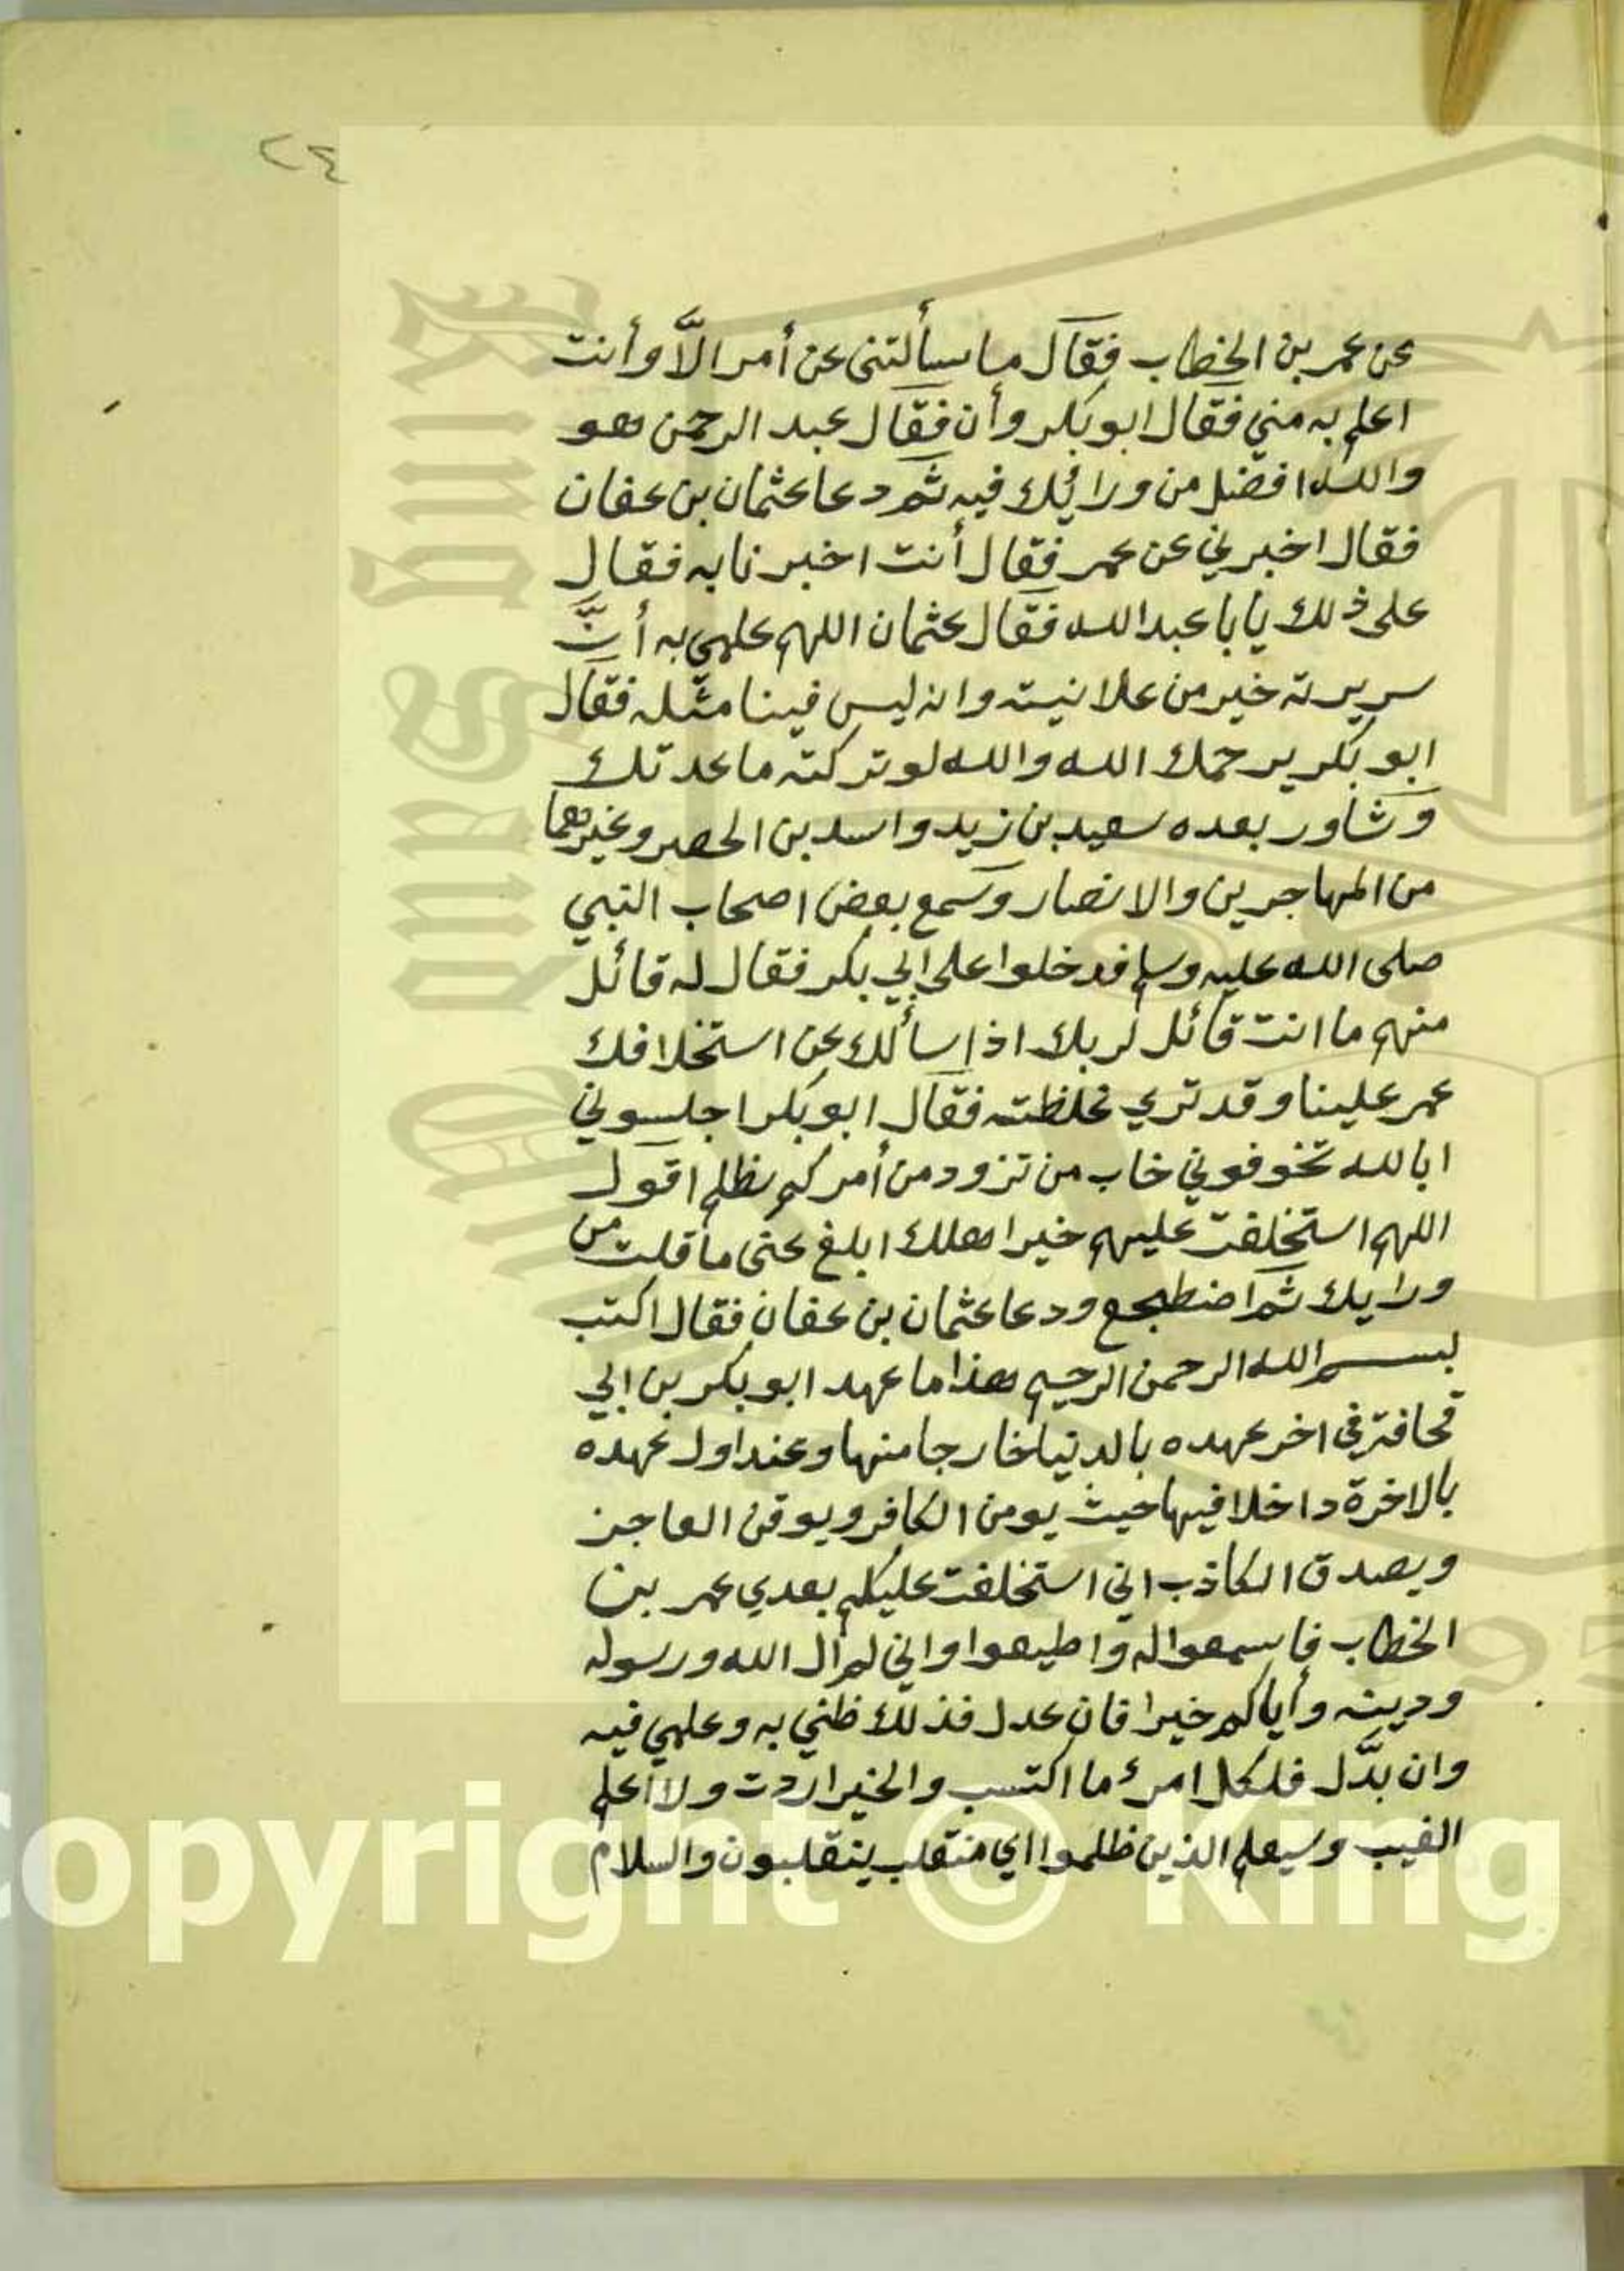 ٢٤
عن عمر بن الخطاب فقال ما سألتنى عن أمر الَّا وأنت
اعلم به مني فقال ابو بكر وأن فقال عبد الرحمن هو
والله افضل من ورائيك فيه ثم دعا عثمان بن عفان
فقال اخبرني عن عمر فقال أنت اخبرنا به فقال
على ذلك يابا عبد الله فقال عثمان اللهم علمي به أنَّ
سريرته خير من علانيته وانه ليس فينا مثله فقال
ابو بكر يرحمك الله والله لو تركته ما عدتك
وشاور بعده سعيد بن زيد واسد بن الحصر وغيرهما
من المهاجرين والانصار وسمع بعض اصحاب النبي
صلى الله عليه وسلم فدخلوا على ابي بكر فقال له قائل
منهم ما انت قائل لربك اذا سألك عن استخلافك
عمر علينا وقد تري غلظته فقال ابو بكر اجلسوني
ابالله تخوفوني خاب من تزود من أمركم بظلم اقول
اللهم استخلفت عليهم خير اهلك ابلغ عنى ما قلت من
ورايك ثم اضطجع ودعا عثمان بن عفان فقال اكتب
بسم الله الرحمن الرحيم هذا ما عهد ابو بكر بن ابي
قحافة في اخر عهده بالدنيا خارجا منها وعند اول عهده
بالاخرة داخلا فيها حيث يومن الكافر ويوقن العاجز
ويصدق الكاذب اني استخلفت عليكم بعدي عمر بن
الخطاب فاسمعوا له واطيعوا واني لم ال الله ورسوله
ودينه وأياكم خيرا فان عدل فذلك ظني به وعلمي فيه
وان بدَّل فلكل امرئ ما اكتسب والخير اردت ولا أعلم
الغيب وسيعلم الذين ظلموا اي منقلب ينقلبون والسلام
opyright © King